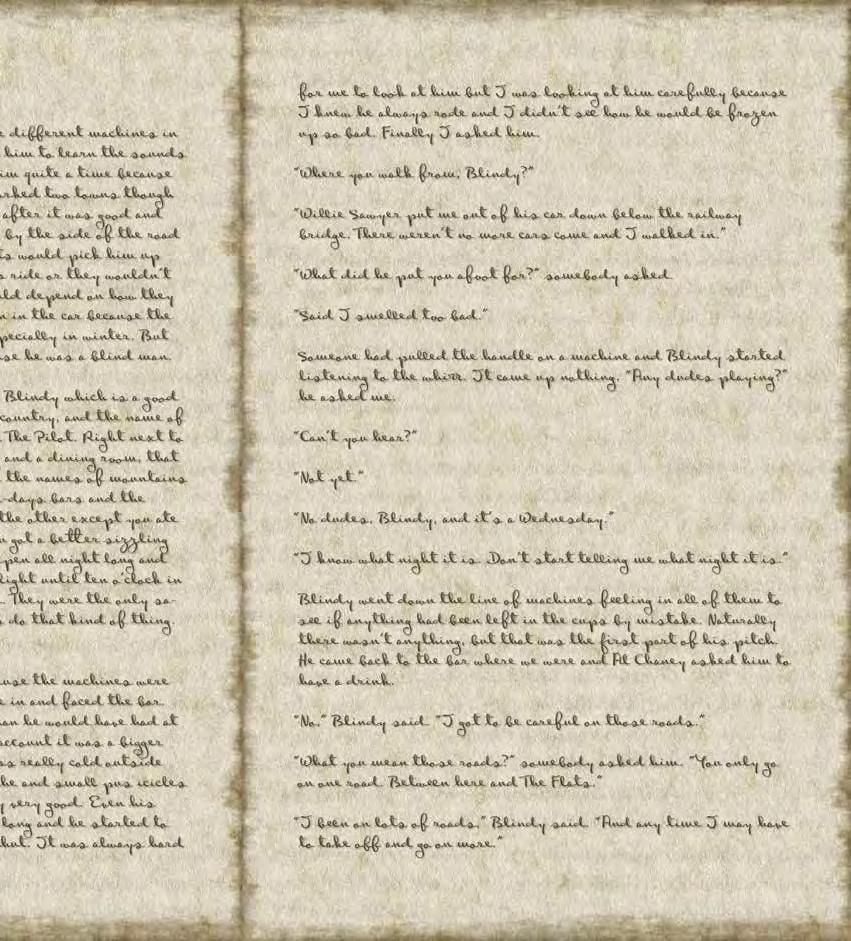 e different machines in
him to learn the sounds
im quite a time because
rked two towns though
after it was good and
by the side of the road
is would pick him up
s ride or they wouldn't
ld depend on how they
n in the car because the
pecially in winter. But
se he was a blind man.
Blindy which is a good
country, and the name of
The Pilot. Right next to
and a dining room, that
the names of mountains
-days bars and the
the other except you ate
n got a better sizzling
pen all night long and
light until ten o'clock in
. They were the only sa-
s do that kind of thing.
use the machines were
e in and faced the bar.
an he would have had at
account it was a bigger
s really cold outside
he and small pus icicles
y very good. Even his
long and he started to
hut. It was always hard
for me to look at him but I was looking at him carefully because
I knew he always rode and I didn't see how he would be frozen
up so bad. Finally I asked him.
"Where you walk from, Blindy?"
"Willie Sawyer put me out of his car down below the railway
bridge. There weren't no more cars come and I walked in."
"What did he put you afoot for?" somebody asked.
"Said I smelled too bad."
Someone had pulled the handle on a machine and Blindy started
listening to the whirr. It came up nothing. "Any dudes playing?"
he asked me.
"Can't you hear?"
"Not yet."
"No dudes, Blindy, and it's a Wednesday."
"I know what night it is. Don't start telling me what night it is."
Blindy went down the line of machines feeling in all of them to
see if anything had been left in the cups by mistake. Naturally
there wasn't anything, but that was the first part of his pitch.
He came back to the bar where we were and Al Chaney asked him to
have a drink.
"No," Blindy said. "I got to be careful on those roads."
"What you mean those roads?" somebody asked him. "You only go
on one road. Between here and The Flats."
"I been on lots of roads," Blindy said. "And any time I may have
to take off and go on more."